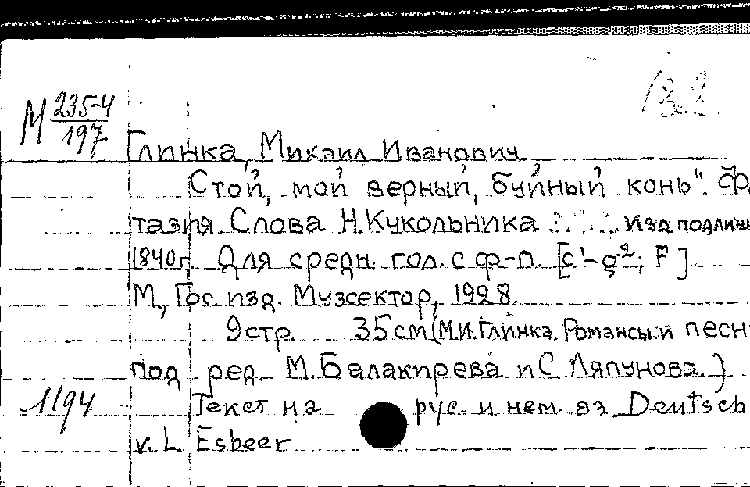 М 235-4
197
Глинка, Михаил Иванович
"Стой, мой верный, буйный конь". Фа
тазия Слова Н. Кукольника изд подлин
1840г. Для средн. гол. с ф-п. [c'-g²; F]
М., Гос. изд. Музсектор, 1928.
9 стр. 35 см (М.И. Глинка. Романсы и песн
под ред. М. Балакирева и С. Ляпунова.)
1194 Текст на рус. и нем. яз Deutsch
v. L. Esbeer